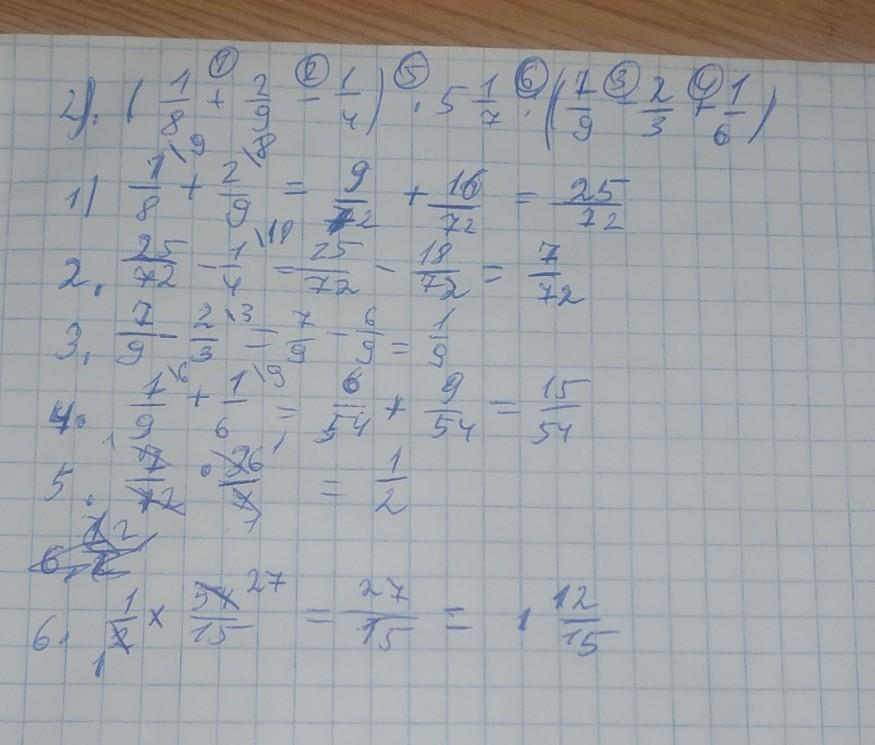 ① ② ⑤ ⑥ ③ ④
2). (1/8 + 2/9 - 1/4) · 5 1/7 : (7/9 - 2/3 + 1/6)
1) 1/8 \9 + 2/9 \8 = 9/72 + 16/72 = 25/72
2. 25/72 - 1/4 \18 = 25/72 - 18/72 = 7/72
3. 7/9 - 2/3 \3 = 7/9 - 6/9 = 1/9
4. 1/9 \6 + 1/6 \9 = 6/54 + 9/54 = 15/54
5. 7/72 · 36/7 = 1/2
6. 1/2 × 54/15 27 = 27/15 = 1 12/15